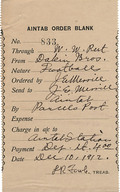 AINTAB ORDER BLANK
No. 833
Through W. W. Peet
From Dakin Bros.
Nature Football
Ordered by J. E. Merrill
Send to J. E. Merrill
Aintab
By Parcels Post
Expense
Charge in a/c to
Aintab Station
Payment Dep. Lt. 4.00
Date Dec. 10, 1912.
TREAS.